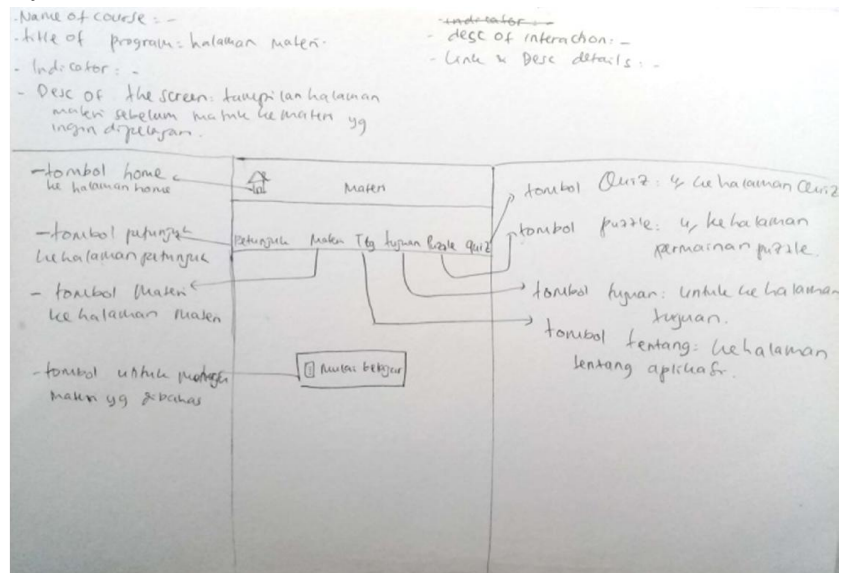 - Name of course : -
- title of program : halaman materi.
- Indicator : -
- Desc of the screen : tampilan halaman
materi sebelum masuk ke materi yg
ingin dipelajari.
indicator : -
- desc of interaction : -
- Link & Desc details : -
- tombol home
ke halaman home
- tombol petunjuk
ke halaman petunjuk
- tombol Materi
ke halaman materi
- tombol untuk
materi yg dibahas
Materi
Petunjuk Materi Ttg tujuan Puzzle Quiz
Mulai belajar
tombol Quiz : u/ ke halaman Quiz
tombol puzzle : u/ ke halaman
permainan puzzle.
tombol tujuan : untuk ke halaman
tujuan.
tombol tentang : ke halaman
tentang aplikasi.